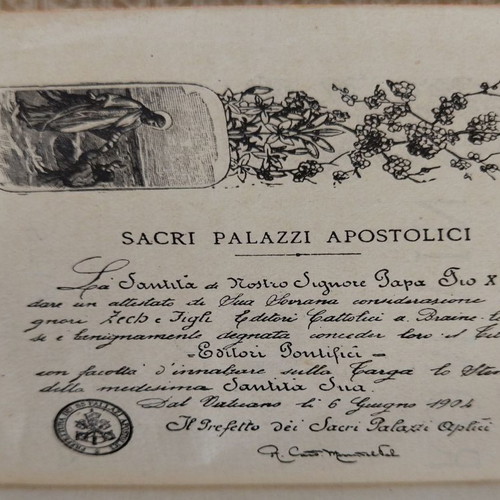 SACRI PALAZZI APOSTOLICI
La Santità di Nostro Signore Papa Pio X
dare un attestato di Sua Sovrana considerazione
gnori Zech e Figli Editori Cattolici a Braine-l
se e benignamente degnata conceder loro il
-Editori Pontifici-
con facoltà d'innalzare sulla Targa lo Ste
della medesima Santità Sua.
Dal Vaticano li 6 Giugno 1904
Il Prefetto dei Sacri Palazzi Aplici